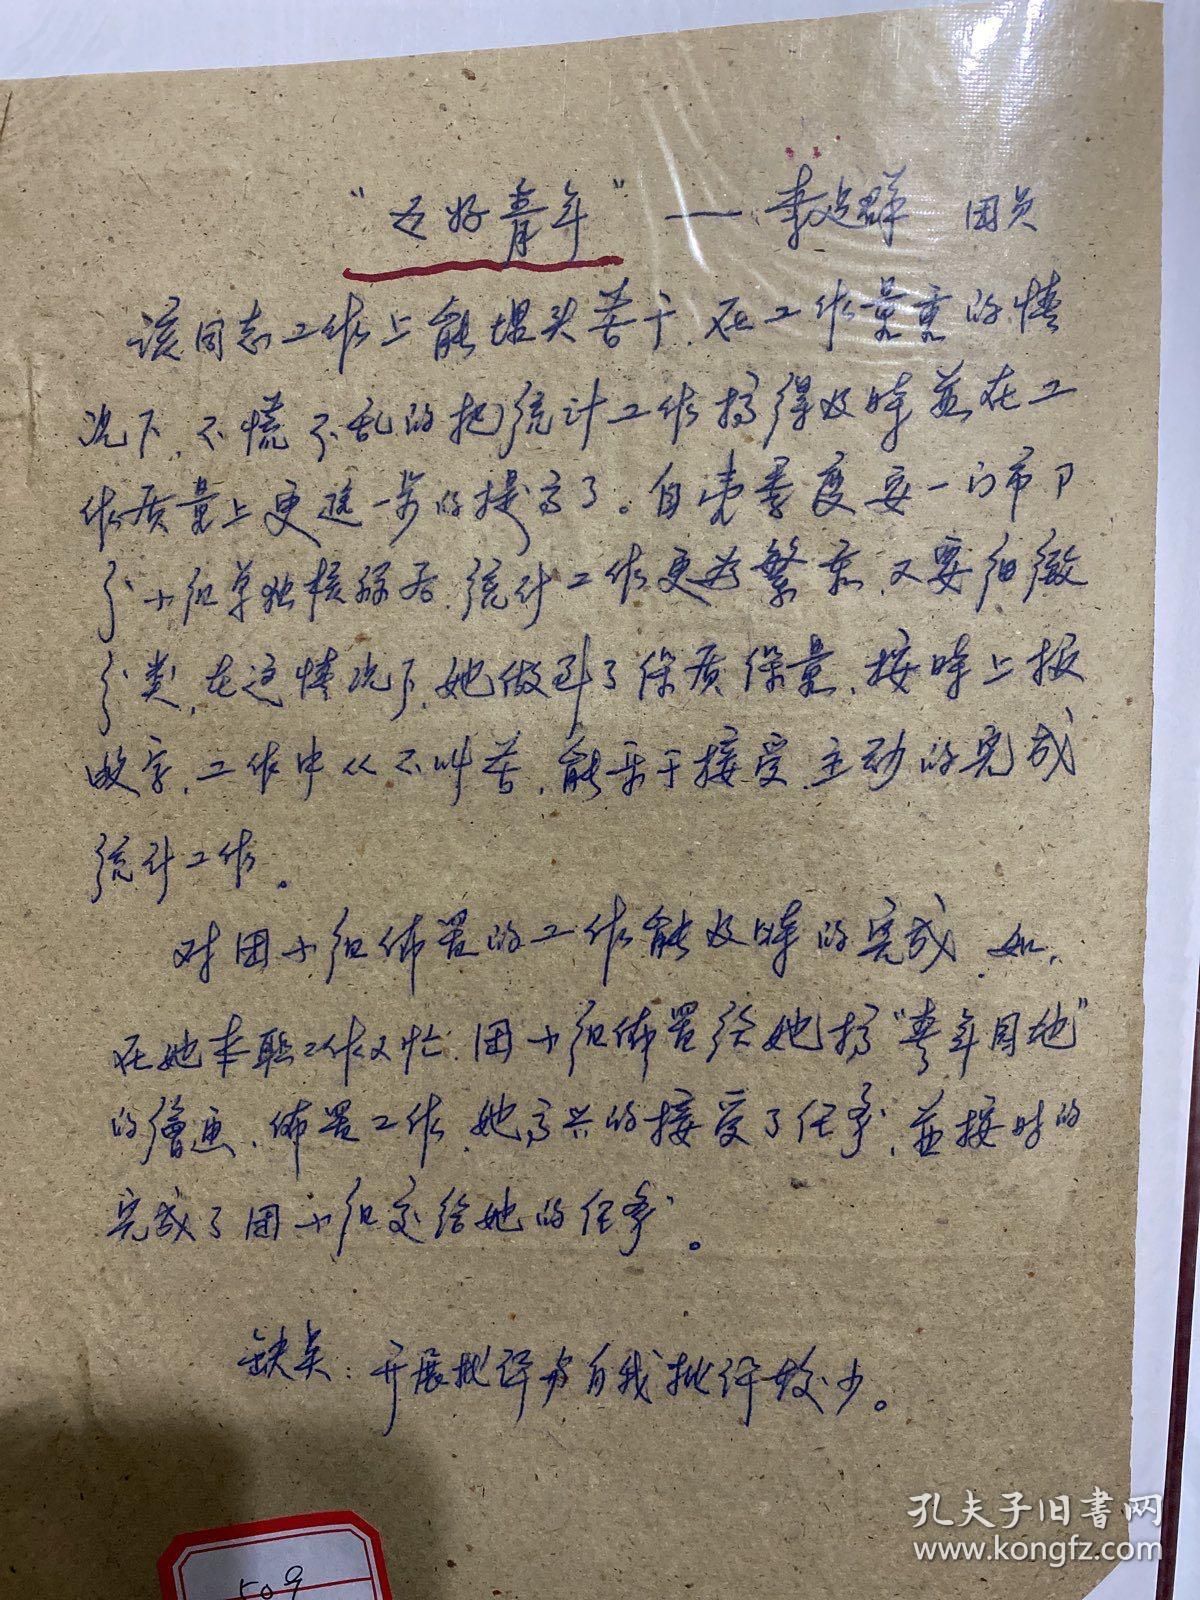 "五好青年" — 李足群 团员
该同志工作上能埋头苦干,在工作量重的情
况下,不慌不乱的把统计工作搞得及时並在工
作质量上更进一步的提高了。自壱季度要一门市卩
分小组单独核算后,统计工作更为繁重,又要细緻
分类,在这情况下,她做到了保质保量,按时上报
数字,工作中从不叫苦,能乐于接受,主动的完成
统计工作。
对团小组佈置的工作能及时的完成,如,
在她本职工作又忙,团小组佈置给她搞"青年园地"
的绘画、佈置工作,她高兴的接受了任务,並按时的
完成了团小组交给她的任务。
缺点:开展批评与自我批评较少。
509
孔夫子旧书网
www.kongfz.com